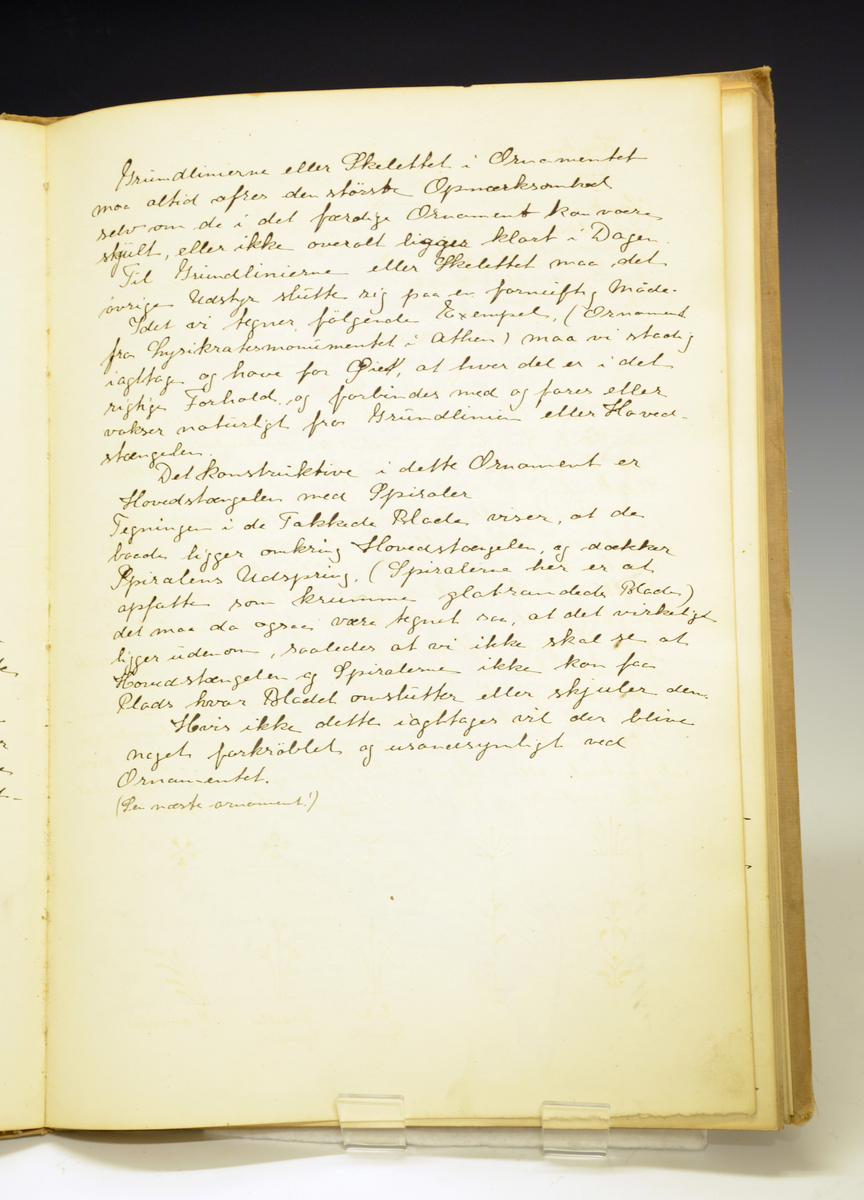 Grundlinierne eller Skelettet i Ornamentet
maa altid ofres den største Opmærksomhed
selv om de i det færdige Ornament kan være
skjult, eller ikke overalt ligger klart i Dagen.
Til Grundlinierne eller Skelettet maa det
øvrige Udstyr slutte sig paa en fornuftig Måde.
Idet vi tegner følgende Exempel, (Ornament
fra Lysikratesmonumentet i Athen) maa vi stadig
iagttage og have for Øiet, at hver del er i det
rigtige Forhold, og forbindes med og fores eller
vokser naturligt fra Grundlinien eller Hoved-
stængelen.
Det konstruktive i dette Ornament er
Hovedstængelen med Spiraler
Tegningen i de Takkede Blade viser, at de
baade ligger omkring Hovedstængelen, og dækker
Spiralens Udspring. (Spiralerne her er at
opfatte som krumme glatrandede Blade)
det maa da ogsaa være tegnet saa, at det virkeligt
ligger udenom, saaledes at vi ikke skal se at
Hovedstængelen og Spiralerne ikke kan faa
Plads hvor Bladet omslutter eller skjuler den.
Hvis ikke dette iagttages vil der blive
noget forkröblet og usandsynligt ved
Ornamentet.
(Se næste ornament!)